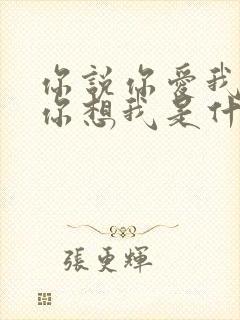 你說你愛我
你想我是什
張更輝